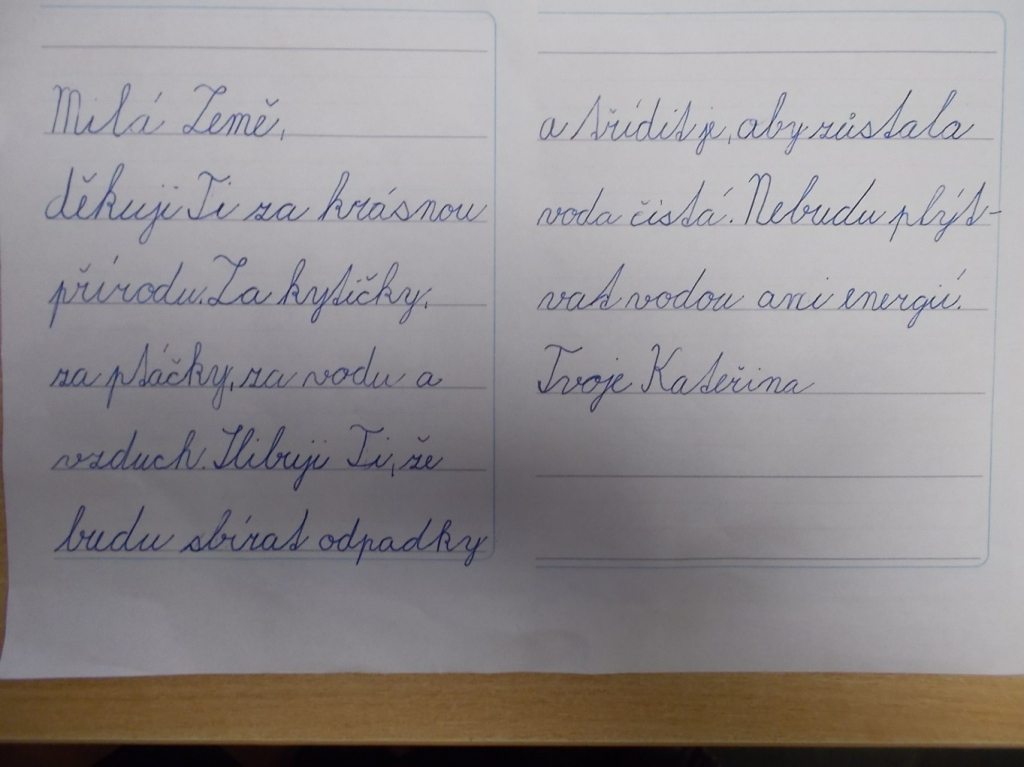 Milá Země,
děkuji Ti za krásnou
přírodu. Za kytičky,
za ptáčky, za vodu a
vzduch. Slibuji Ti, že
budu sbírat odpadky
a třídit je, aby zůstala
voda čistá. Nebudu plýt-
vat vodou ani energií.
Tvoje Kateřina